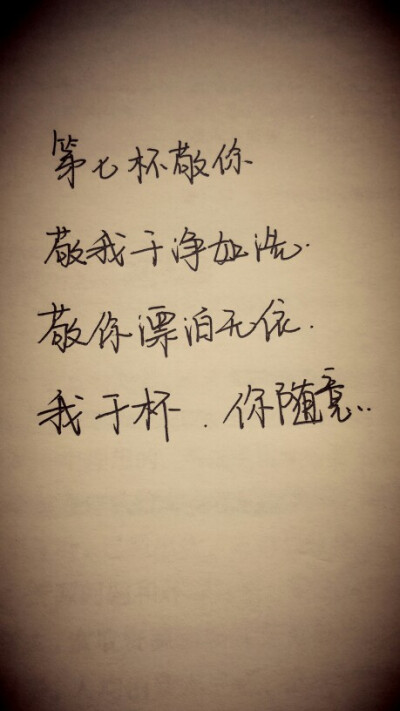 第七杯敬你
敬我干净如洗.
敬你漂泊无依.
我干杯.你随意..